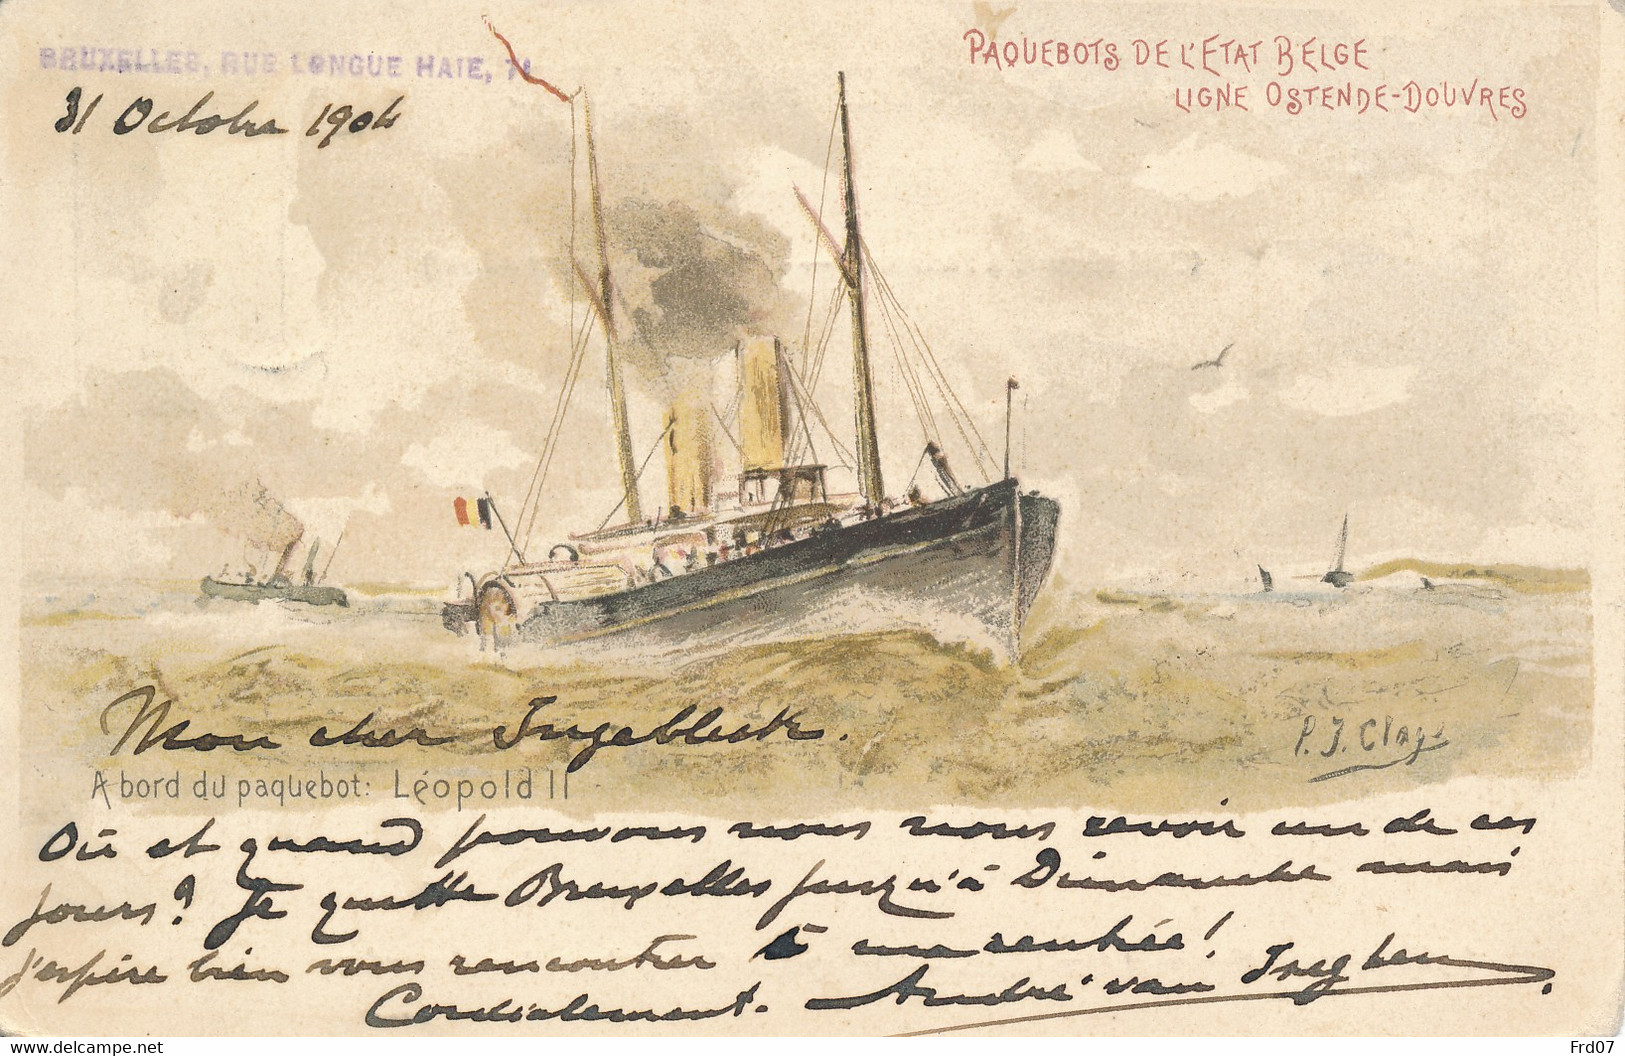 BRUXELLES, RUE LONGUE HAIE, 71
31 Octobre 1904
PAQUEBOTS DE L'ETAT BELGE
LIGNE OSTENDE-DOUVRES
P. J. Clays
Mon cher Ingebleek.
A bord du paquebot: Léopold II
Où et quand pouvons nous nous revoir un de ces
jours? Je quitte Bruxelles jusqu'à Dimanche mais
j'espère bien vous rencontrer à ma rentrée!
Cordialement. André van Iseghem.
Frd07